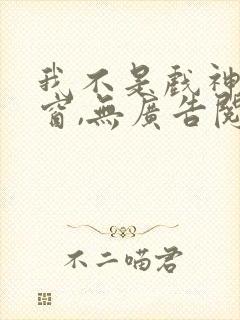 我不是戲神
窗,無廣告閱
不二喵君